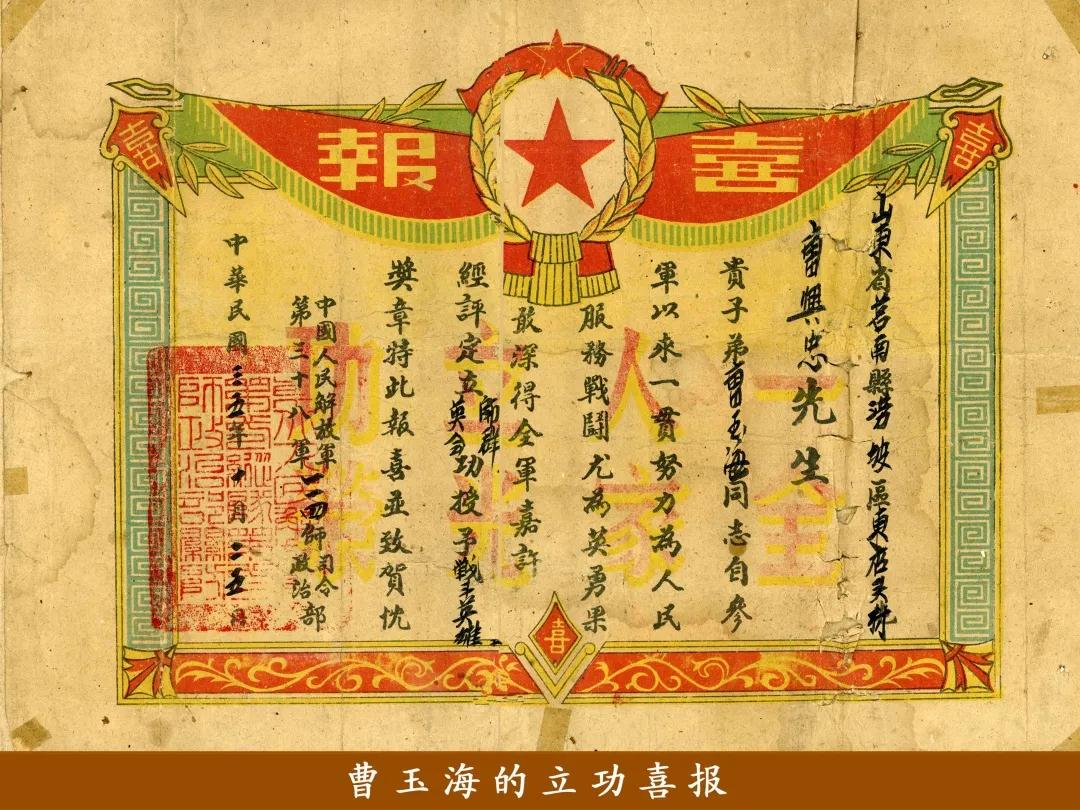 喜報
喜
喜
山東省莒南縣澇坡區東店頭村
曹興忠先生
貴子弟曹玉海同志自參
軍以來一貫努力為人民
服務戰鬪尤為英勇果
敢深得全軍嘉許
經評定立師群英會功授予戰鬥英雄
獎章特此報喜並致賀忱
中國人民解放軍
第三十八軍一一四師司令
政治部
中華民國三五年十月二五日
一人立功
全家光榮
喜
曹玉海的立功喜报